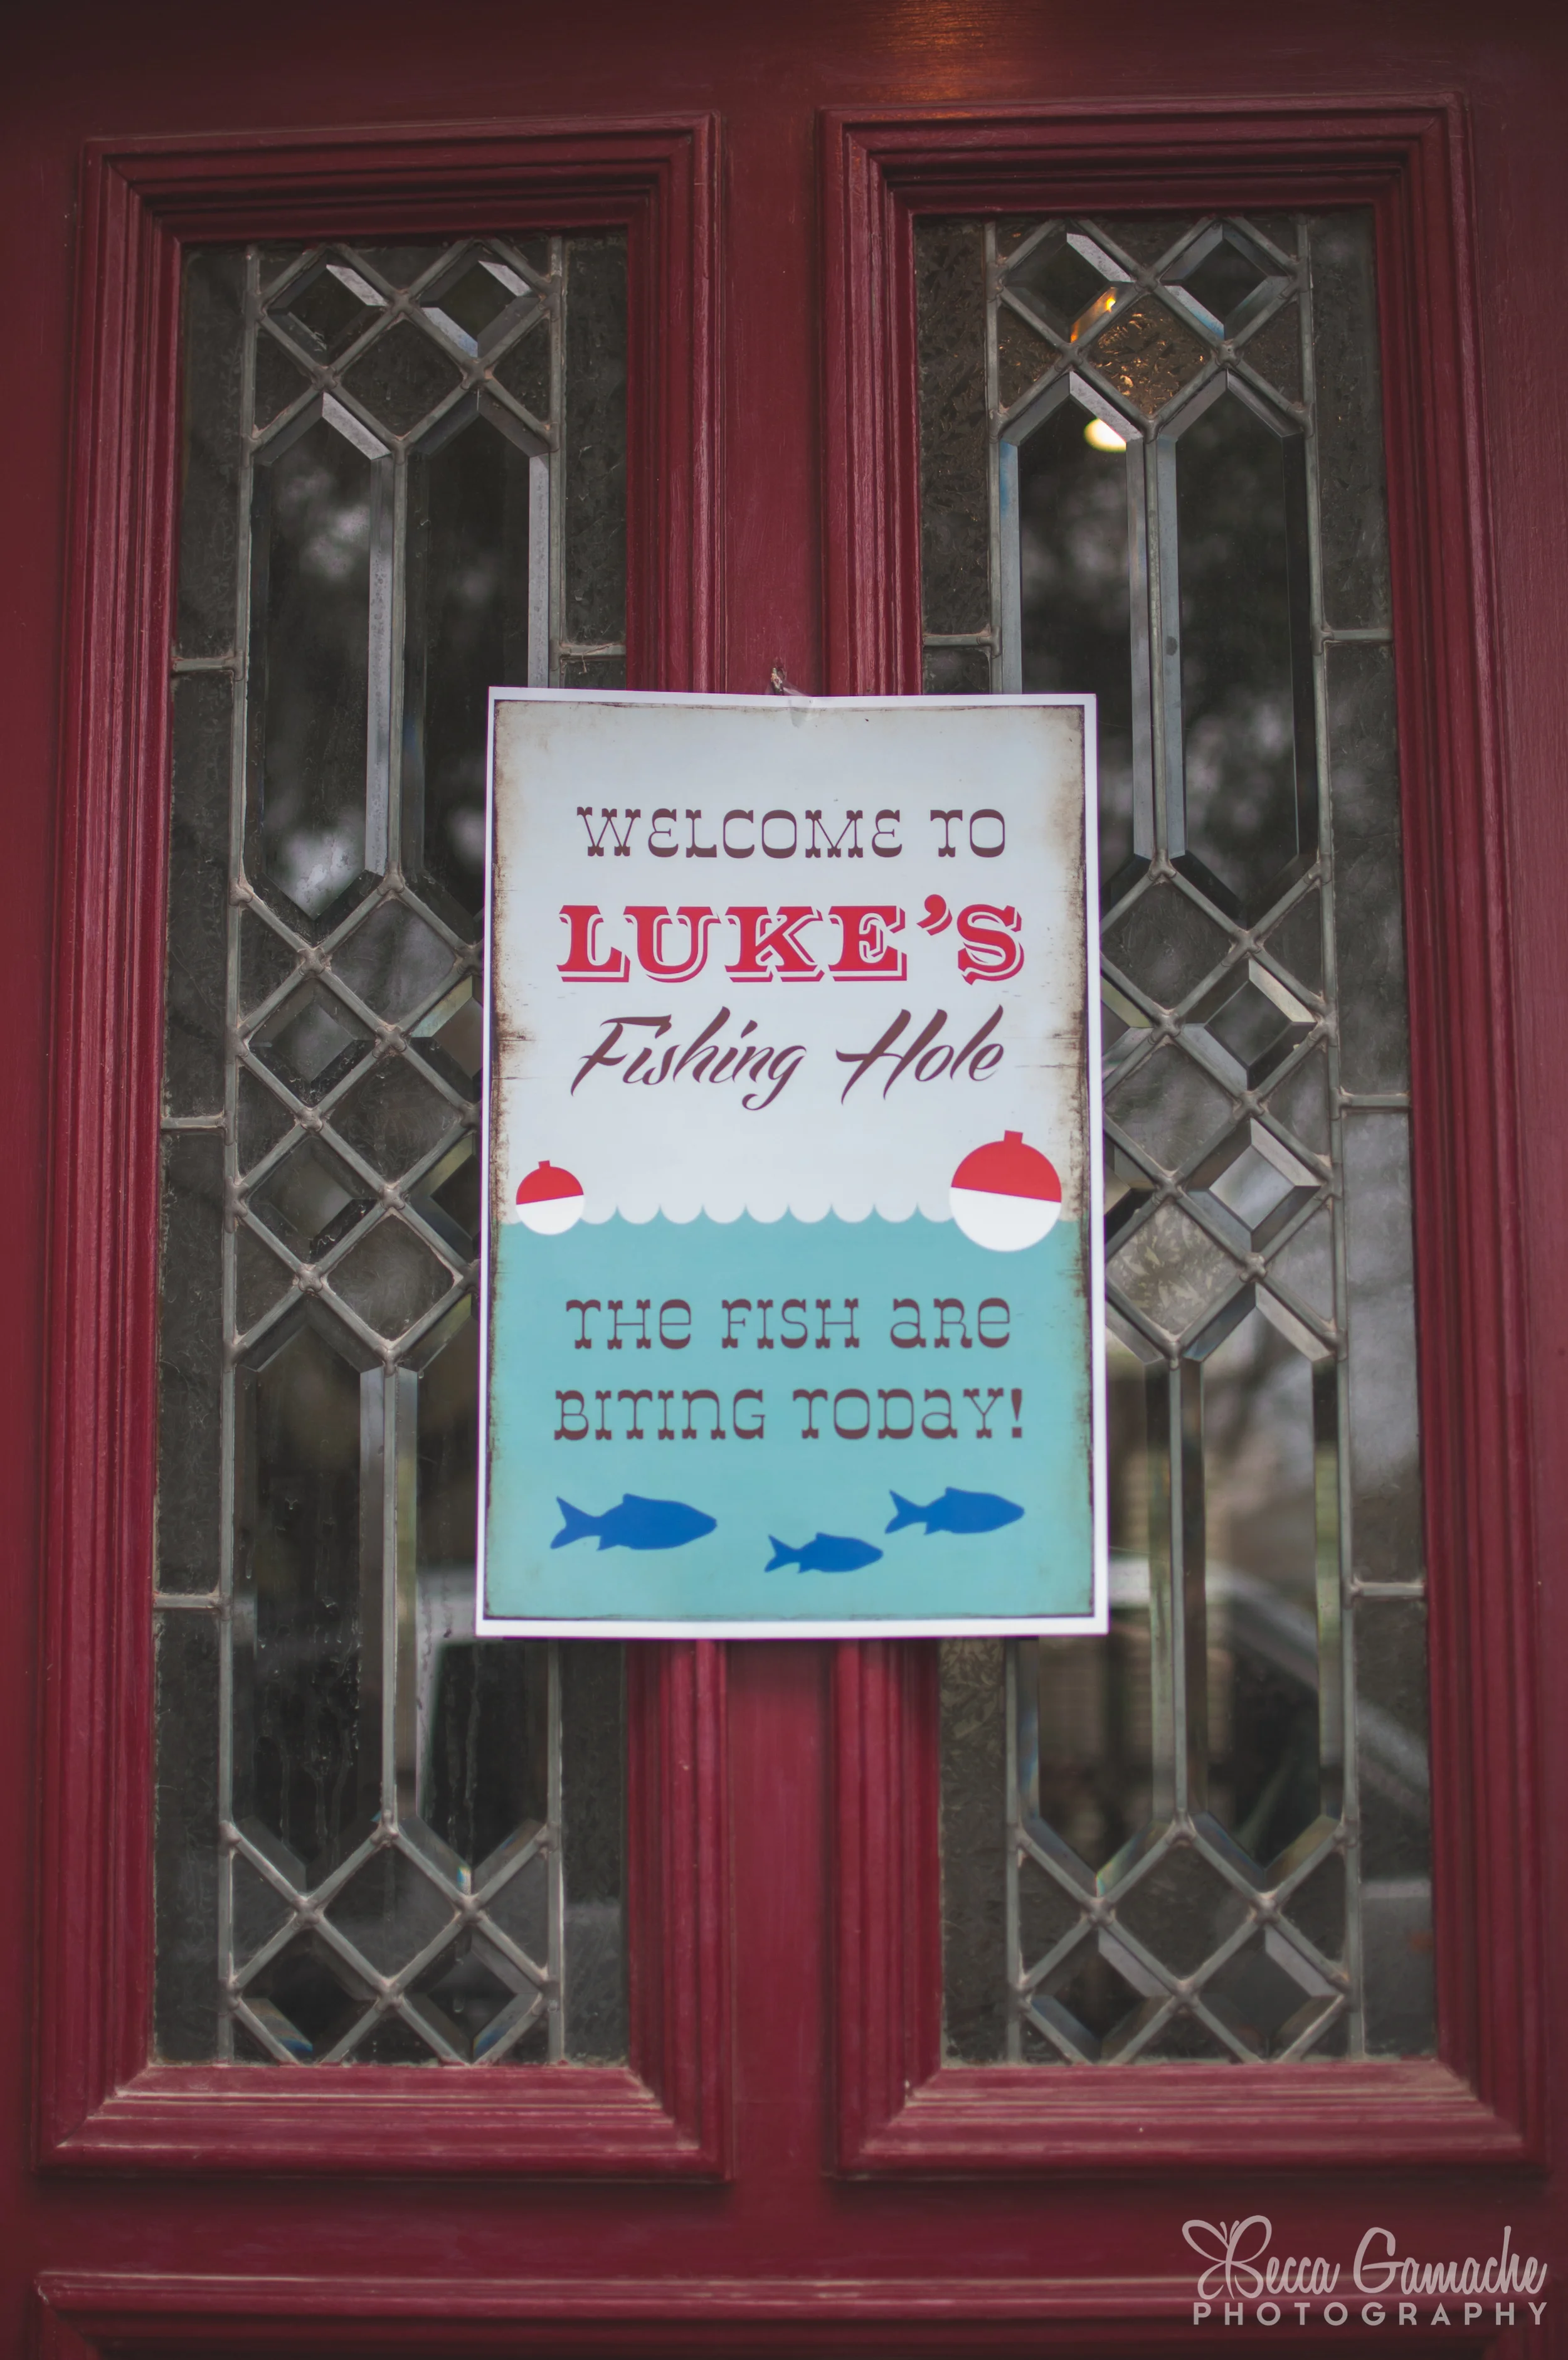 WELCOME TO
LUKE'S
Fishing Hole
THE FISH ARE
BITING TODAY!
Becca Gamache
PHOTOGRAPHY